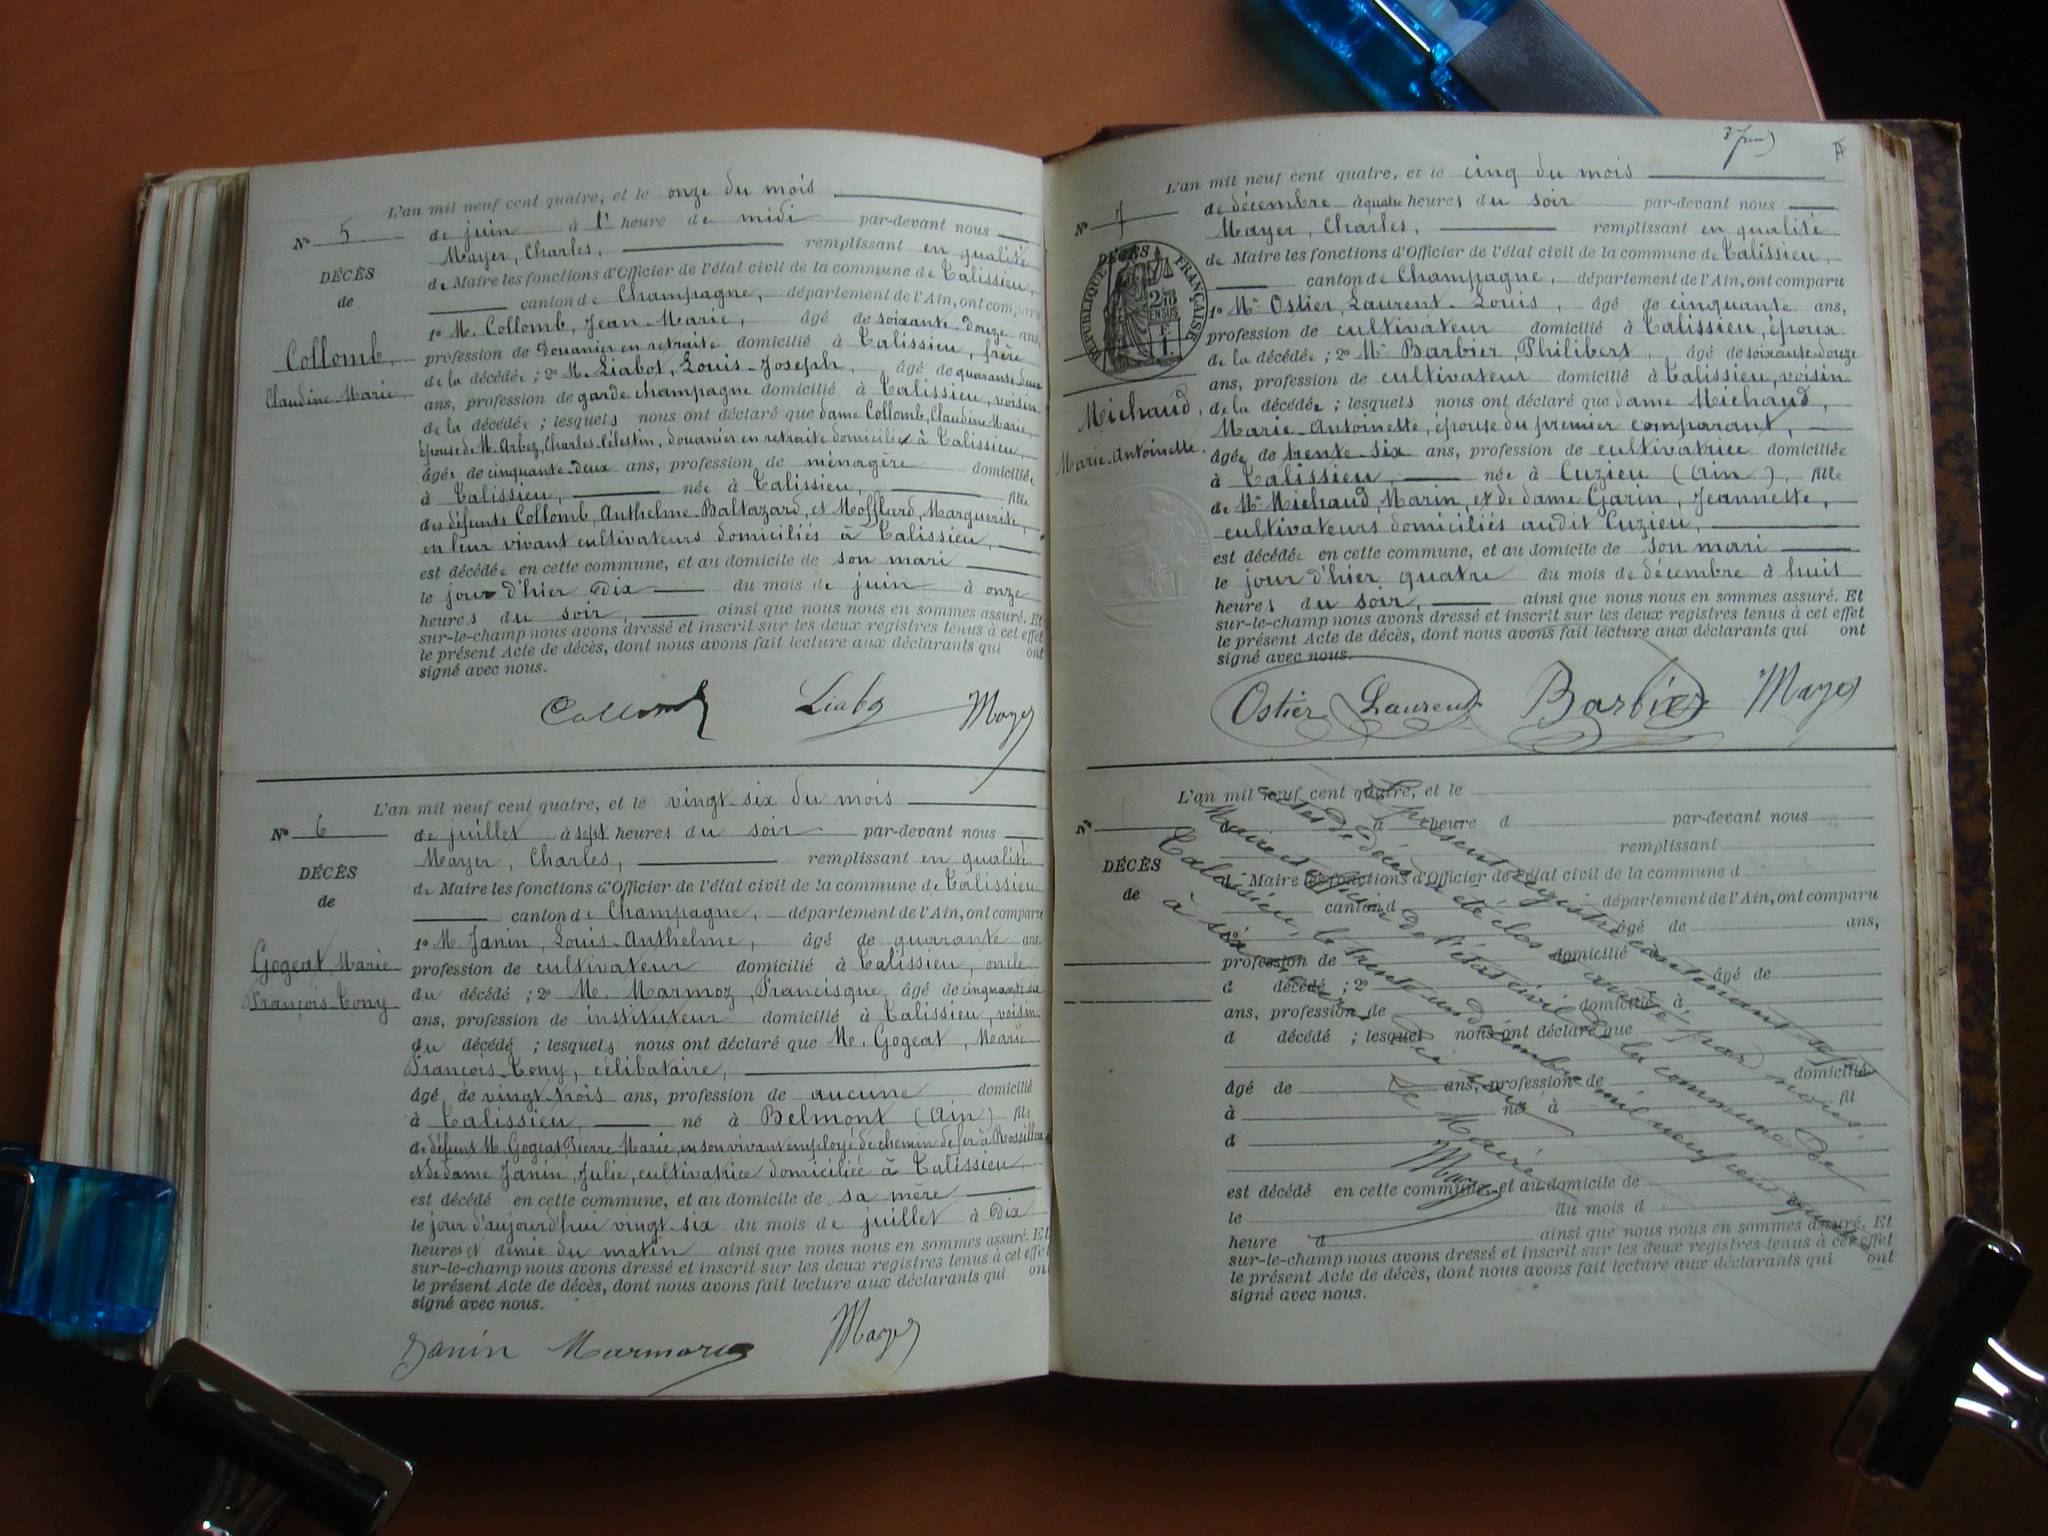 L'an mil neuf cent quatre, et le onze du mois
N° 5
de juin à 1 heure de midi par-devant nous
Mayer, Charles, remplissant en qualité
DÉCÈS
de Maire les fonctions d'Officier de l'état civil de la commune de Talissieu,
de
canton de Champagne, département de l'Ain, ont comparu
1° M. Collomb, Jean-Marie, âgé de soixante-douze ans,
Collomb,
profession de douanier en retraite domicilié à Talissieu, frère
de la décédée ; 2° M. Liabot, Louis-Joseph, âgé de quarante-deux
Claudine-Marie
ans, profession de garde champagne domicilié à Talissieu, voisin
de la décédée ; lesquels nous ont déclaré que dame Collomb, Claudine Marie,
épouse de M. Arbez, Charles-Célestin, douanier en retraite domiciliée à Talissieu,
âgée de cinquante-deux ans, profession de ménagère domiciliée
à Talissieu, née à Talissieu, fille
des défunts Collomb, Anthelme-Baltazard, et Mofflard, Marguerite,
en leur vivant cultivateurs domiciliés à Talissieu,
est décédée en cette commune, et au domicile de son mari
le jour d'hier dix du mois de juin à onze
heures du soir, ainsi que nous nous en sommes assuré. Et
sur-le-champ nous avons dressé et inscrit sur les deux registres tenus à cet effet
le présent Acte de décès, dont nous avons fait lecture aux déclarants qui ont
signé avec nous.
Collomb Liabo Mayer
L'an mil neuf cent quatre, et le vingt-six du mois
N° 6
de juillet à sept heures du soir par-devant nous
Mayer, Charles, remplissant en qualité
DÉCÈS
de Maire les fonctions d'Officier de l'état civil de la commune de Talissieu
de
canton de Champagne, département de l'Ain, ont comparu
1° M. Janin, Louis-Anthelme, âgé de quarante ans,
Gogeat, Marie
profession de cultivateur domicilié à Talissieu, oncle
François-Tony
du décédé ; 2° M. Marmoz, Francisque, âgé de cinquante-six
ans, profession de instituteur domicilié à Talissieu, voisin
du décédé ; lesquels nous ont déclaré que M. Gogeat, Marie
François-Tony, célibataire,
âgé de vingt-trois ans, profession de aucune domicilié
à Talissieu, né à Belmont (Ain) fils
de défunt M. Gogeat Pierre Marie, en son vivant employé de chemin de fer à Rossillon
et de dame Janin, Julie, cultivatrice domiciliée à Talissieu
est décédé en cette commune, et au domicile de sa mère
le jour d'aujourd'hui vingt-six du mois de juillet à dix
heures et demie du matin ainsi que nous nous en sommes assuré. Et
sur-le-champ nous avons dressé et inscrit sur les deux registres tenus à cet effet
le présent Acte de décès, dont nous avons fait lecture aux déclarants qui ont
signé avec nous.
Janin Marmoz Mayer
L'an mil neuf cent quatre, et le cinq du mois
N° 7
de décembre à quatre heures du soir par-devant nous
Mayer, Charles, remplissant en qualité
DÉCÈS
RÉPUBLIQUE FRANÇAISE
de Maire les fonctions d'Officier de l'état civil de la commune de Talissieu,
canton de Champagne, département de l'Ain, ont comparu
1° Mr Ostier, Laurent-Louis, âgé de cinquante ans,
profession de cultivateur domicilié à Talissieu, époux
de la décédée ; 2° Mr Barbier, Philibert, âgé de soixante-douze
ans, profession de cultivateur domicilié à Talissieu, voisin
Michaud,
de la décédée ; lesquels nous ont déclaré que dame Michaud,
Marie-Antoinette, épouse du premier comparant,
Marie-Antoinette.
âgée de trente-six ans, profession de cultivatrice domiciliée
à Talissieu, née à Cuzieu (Ain), fille
de Mr Michaud, Marin, et de dame Garin, Jeannette,
cultivateurs domiciliés audit Cuzieu,
est décédée en cette commune, et au domicile de son mari
le jour d'hier quatre du mois de décembre à huit
heures du soir, ainsi que nous nous en sommes assuré. Et
sur-le-champ nous avons dressé et inscrit sur les deux registres tenus à cet effet
le présent Acte de décès, dont nous avons fait lecture aux déclarants qui ont
signé avec nous.
Ostier Laurent Barbier Mayer
L'an mil neuf cent quatre, et le
N°
à heure d par-devant nous
remplissant
DÉCÈS
d Maire les fonctions d'Officier de l'état civil de la commune d
de
canton d département de l'Ain, ont comparu
1° âgé de ans,
profession de domicilié
d décédé ; 2° âgé de
ans, profession de domicilié à
d décédé ; lesquel nous ont déclaré que
domicilié
âgé de ans, profession de
à né à fil
d
est décédé en cette commune, et au domicile de
le du mois d
heure d ainsi que nous nous en sommes assuré. Et
sur-le-champ nous avons dressé et inscrit sur les deux registres tenus à cet effet
le présent Acte de décès, dont nous avons fait lecture aux déclarants qui ont
signé avec nous.
Le présent registre contenant sept
actes de décès a été clos et arrêté par nous,
Maire et officier de l'état civil de la commune de
Talissieu, le trente un décembre mil neuf cent quatre
à six heures du soir
Le Maire
Mayer